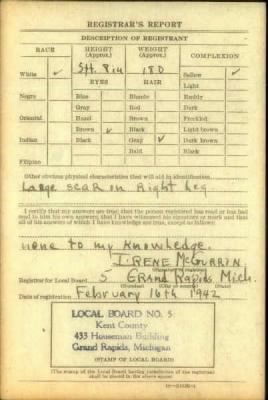 REGISTRAR'S REPORT
DESCRIPTION OF REGISTRANT
RACE HEIGHT (Approx.) WEIGHT (Approx.) COMPLEXION
White ✓ 5ft. 8in 180 Sallow ✓
EYES HAIR Light
Negro Blue Blonde Ruddy
Gray Red Dark
Oriental Hazel Brown Freckled
Brown ✓ Black Light brown
Indian Black Gray ✓ Dark brown
Bald Black
Filipino
Other obvious physical characteristics that will aid in identification
Large scar on Right Leg
I certify that my answers are true; that the person registered has read or has had
read to him his own answers; that I have witnessed his signature or mark and that
all of his answers of which I have knowledge are true, except as follows:
none to my knowledge.
Irene McGurrin
Registrar for Local Board 5 Grand Rapids Mich.
Date of registration February 16th 1942
LOCAL BOARD NO. 5
Kent County
433 Houseman Building
Grand Rapids, Michigan
(STAMP OF LOCAL BOARD)
(The stamp of the Local Board having jurisdiction of the registrant
shall be placed in the above space)